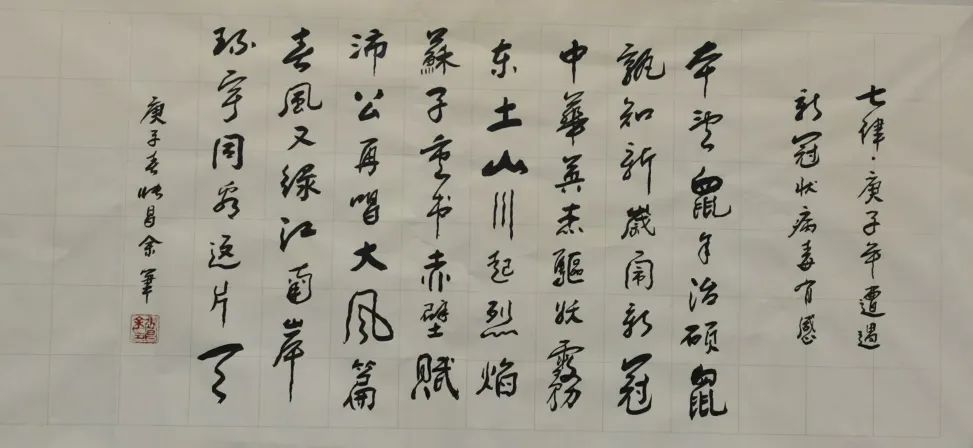 七律·庚子年遭遇
新冠状病毒有感
本望鼠年治硕鼠
孰知新岁闹新冠
中华英杰驱妖雾
东土山川起烈焰
蘇子重书赤壁賦
沛公再唱大风篇
春風又绿江南岸
环宇同看这片天
庚子春 昌余華